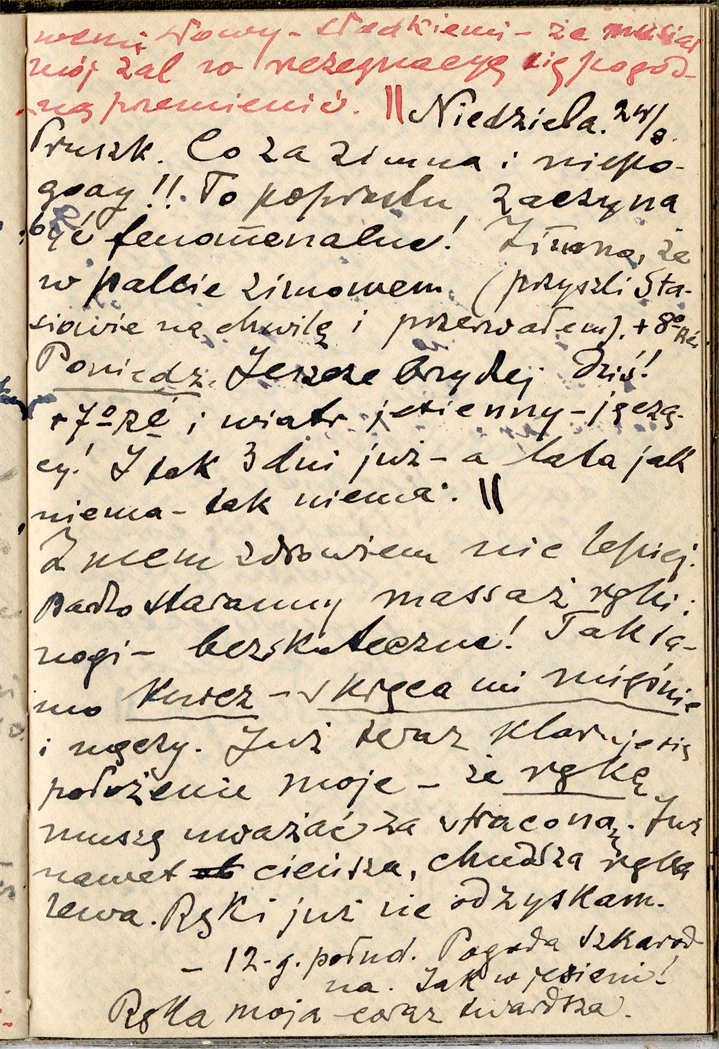 wemi słowy - słodkiemi - że musiał
mój żal w rezegnacyę się pogod-
ną przemienić. || Niedziela. 24/8.
Pruszk. Co za zimna i niepo-
gody!! To poprostu zaczyna
być fenomenalne! Zimno, że
w palcie zimowem (przyszli Sta-
siowie na chwilę i przerwałem). +8° Ré
Poniedz. Jeszcze brzydziej dziś!
+7° Ré i wiatr jesienny - jęczą-
cy! I tak 3 dni już - a lata jak
niema - tak niema. ||
Z mem zdrowiem nie lepiej.
Bardzo staranny massaż ręki i
nogi - bezskuteczne! Tak sa-
mo kurcz - skręca mi mięśnie
i męczy. Już teraz klaruje się
położenie moje - że rękę
muszę uważać za straconą. Już
nawet cieńsza, chudsza ręka
lewa. Ręki już nie odzyskam.
- 12-g. połud. Pogoda szkarad-
na. Jak w jesieni!
Ręka moja coraz twardsza.